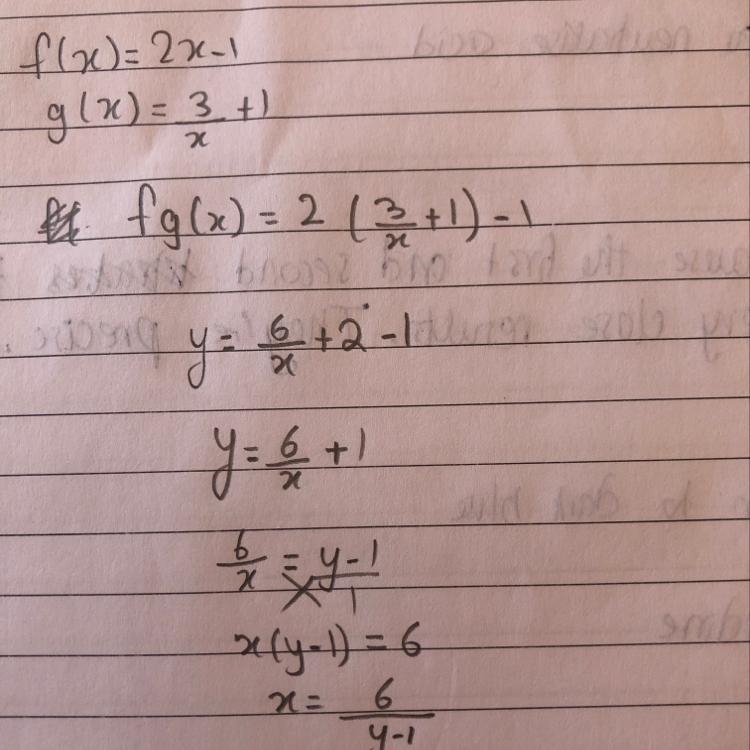 f(x) = 2x-1
g(x) = 3/x + 1
fg(x) = 2 (3/x + 1) - 1
y = 6/x + 2 - 1
y = 6/x + 1
6/x = y-1/1
x(y-1) = 6
x = 6/y-1